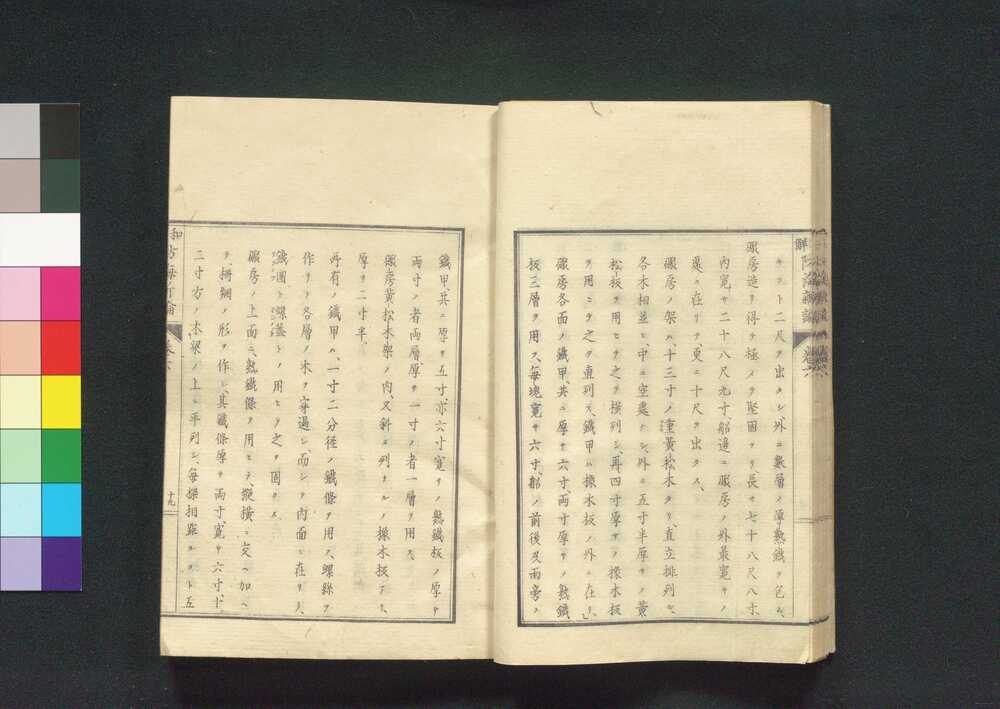 キヿト二尺ヲ出タシ、外ニ數層ノ厚熟鐵ヲ包ム、
礮房造リ得テ極メテ堅固ナリ、長サ七十八尺八寸、
內寬サ二十八尺九寸、船邊ニ礮房ノ外最寬サノ
處ニ在リテ、更ニ十尺ヲ出タス、
礮房ノ架ハ、十三寸ノ濶黃松木ヲ、直立排列セ、
各木相並ヒ、中ニ空處ナシ、外ニ五寸半厚サノ黃
松板ヲ用ヒテ之ヲ橫列シ、再四寸厚サノ橡木板
ヲ用ニテ之ヲ直列ス、鐵甲ハ橡木板ノ外ニ在リ、
礮房各面ノ鐵甲、共ニ厚サ六寸兩寸厚サノ熟鐵
板三層ヲ用ス、每塊寬サ六寸、船ノ前後及兩旁ノ
鐵甲、共ニ厚サ五寸、亦六寸寬サノ熟鐵板ノ厚サ
兩寸ノ者兩層厚サ一寸ノ者一層ヲ用ス、
礮房黃松木架ノ內、又斜ニ列ナルノ橡木板アリ、
厚サ二寸半、
所有ノ鐵甲ハ、一寸二分徑ノ鐵條ヲ用ス、螺絲ヲ
作リテ各層ノ木ヲ穿過シ、而シテ內面ニ在リテ、
鐵圈ト螺蓋トノ用ヒテ之ヲ固タス
礮房ノ上面ニ、熟鐵條ヲ用ヒテ、縱橫ニ交ヘ加ヘ
テ、柵網ノ形ヲ作シ、其鐵條厚サ兩寸、寬サ六寸、十
二寸方ノ木梁ノ上ニ平列シ、每條相距ルヿト五
十九